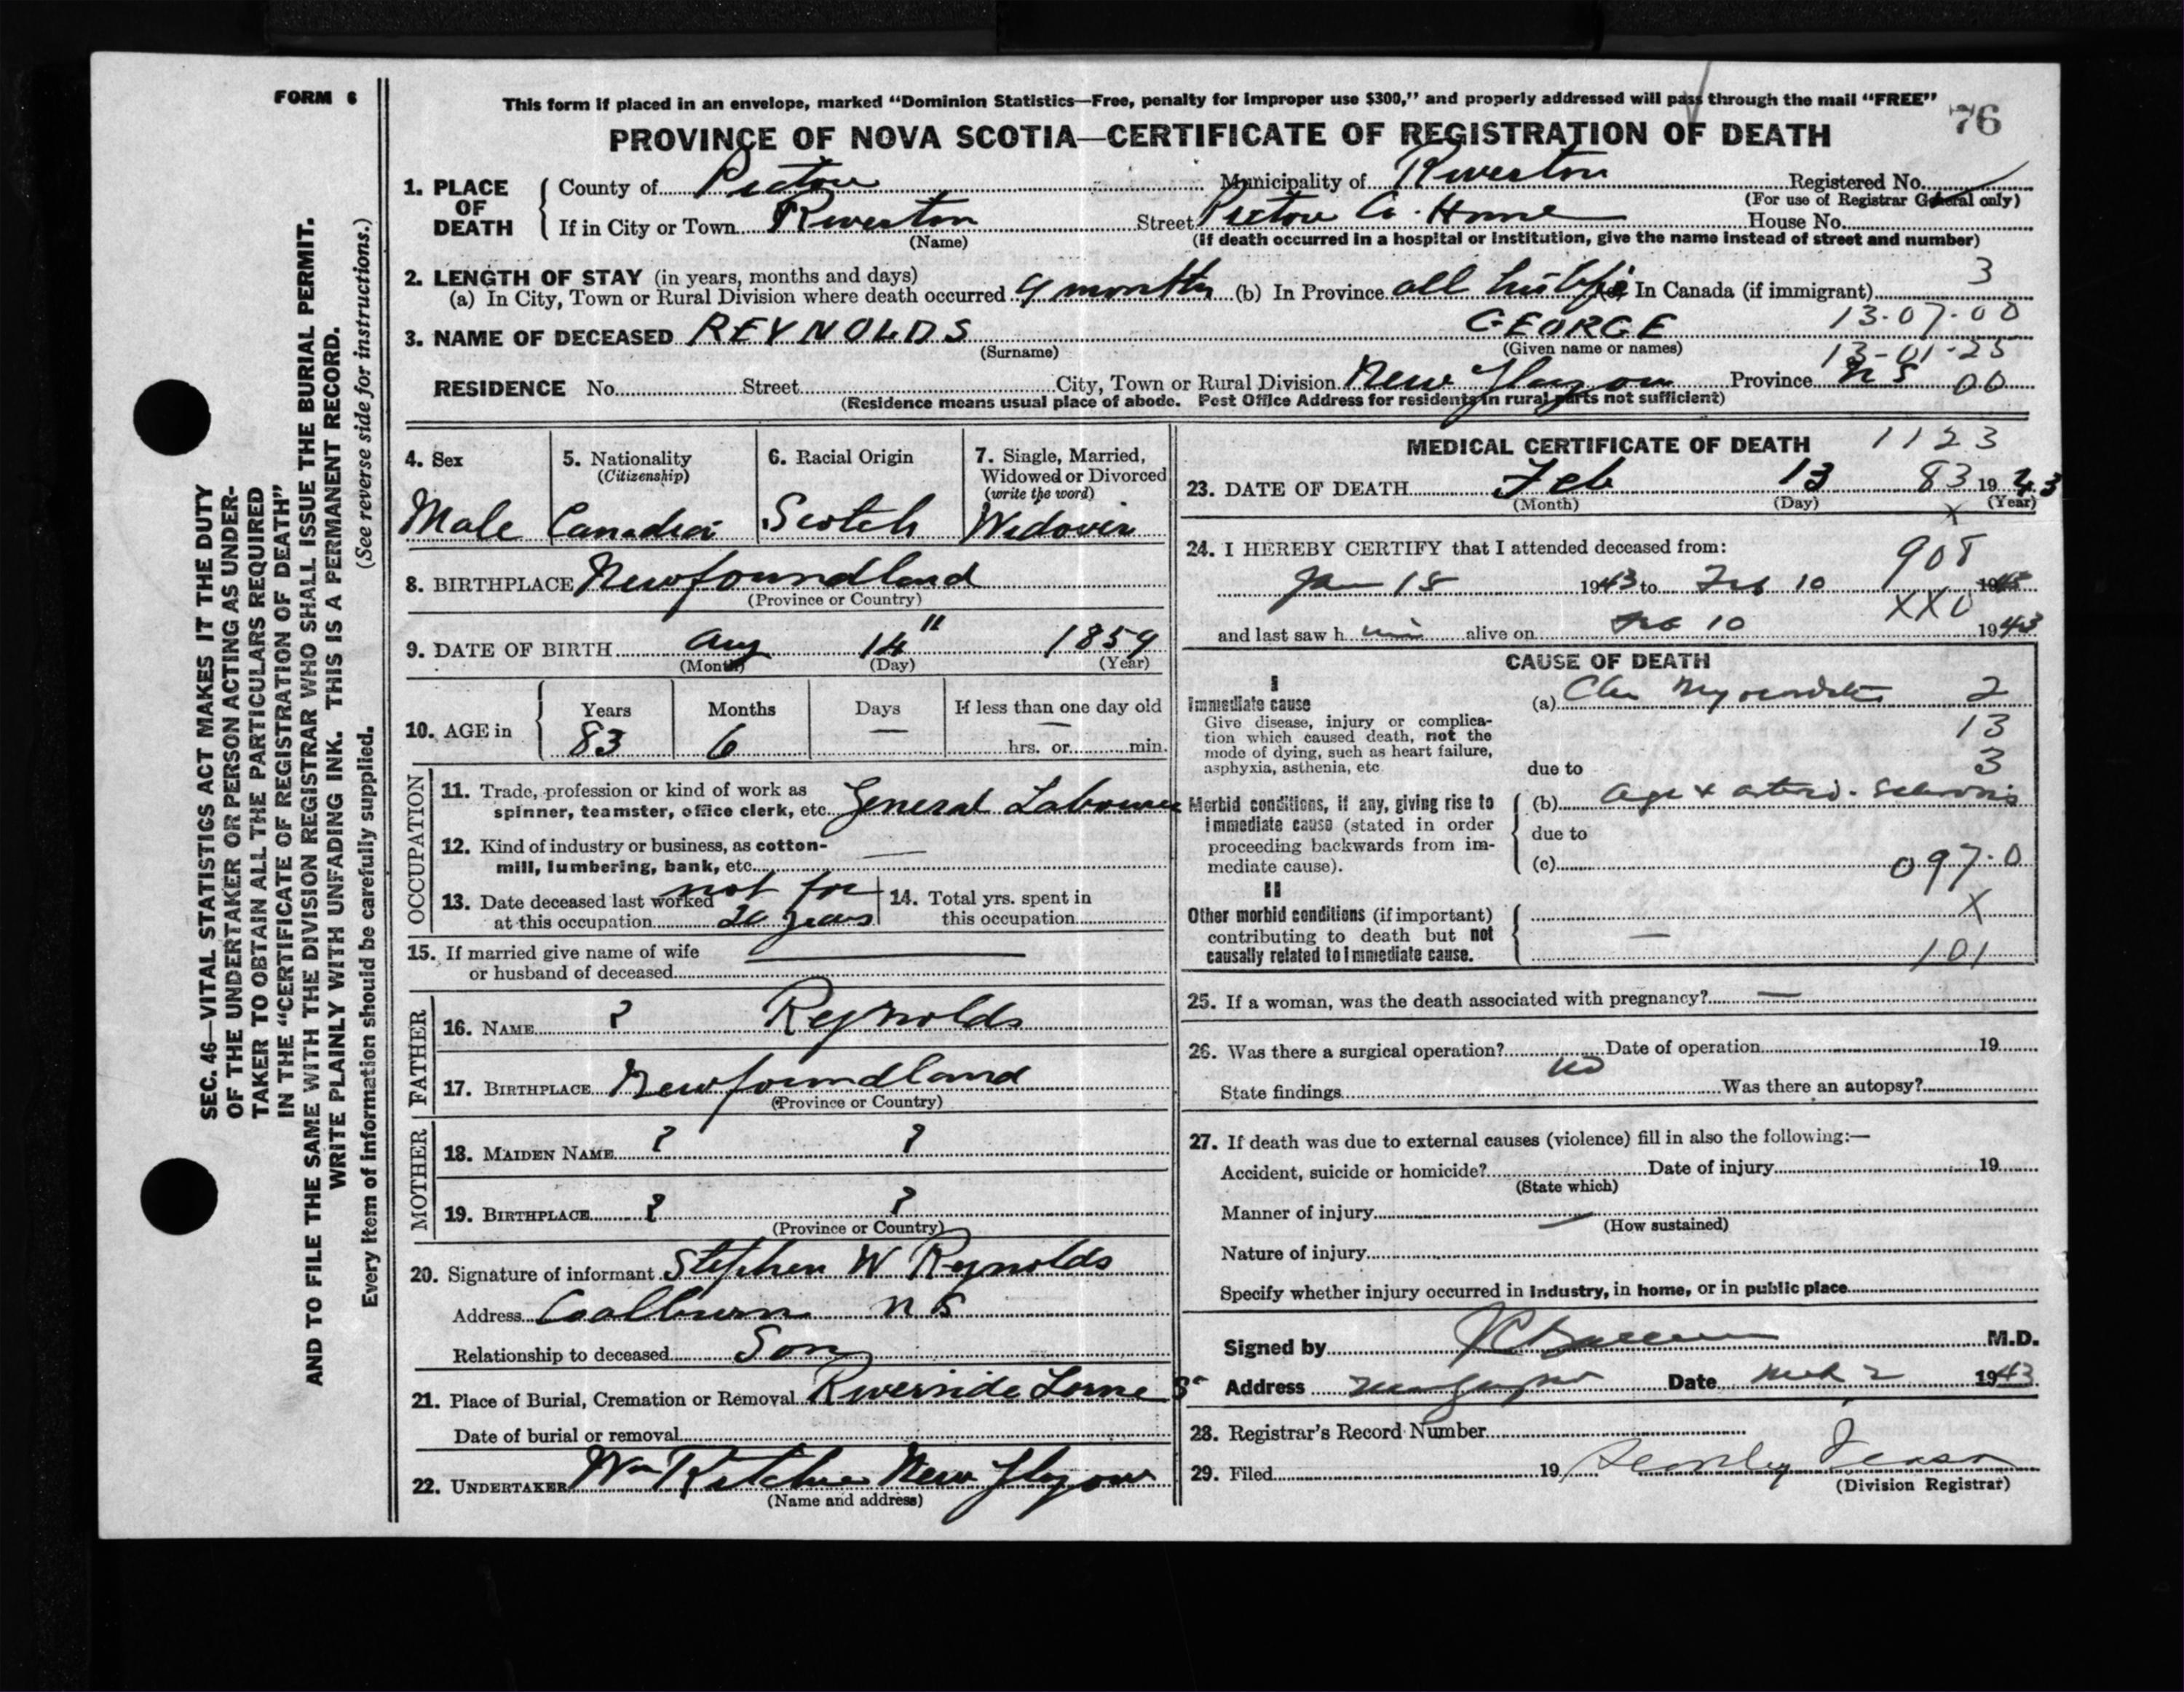 FORM 6
This form if placed in an envelope, marked "Dominion Statistics—Free, penalty for improper use $300," and properly addressed will pass through the mail "FREE"
76
PROVINCE OF NOVA SCOTIA—CERTIFICATE OF REGISTRATION OF DEATH
1. PLACE OF DEATH
County of Pictou Municipality of Riverton Registered No.
(For use of Registrar General only)
If in City or Town Riverton Street Pictou Co. Home House No.
(Name) (If death occurred in a hospital or institution, give the name instead of street and number)
2. LENGTH OF STAY (in years, months and days)
(a) In City, Town or Rural Division where death occurred 9 months (b) In Province all his life In Canada (if immigrant) 3
13-07-00
3. NAME OF DECEASED REYNOLDS GEORGE
(Surname) (Given name or names) 13-01-25
RESIDENCE No. Street City, Town or Rural Division New Glasgow Province N S 00
(Residence means usual place of abode. Post Office Address for residents in rural parts not sufficient)
4. Sex
Male
5. Nationality
(Citizenship)
6. Racial Origin
Scotch
7. Single, Married, Widowed or Divorced
(write the word)
8. BIRTHPLACE Newfoundland
(Province or Country)
9. DATE OF BIRTH Aug 14" 1859
(Month) (Day) (Year)
10. AGE in
Years Months Days If less than one day old
83 6 — — hrs. or min.
OCCUPATION
11. Trade, profession or kind of work as
spinner, teamster, office clerk, etc. General Labourer
12. Kind of industry or business, as cotton-
mill, lumbering, bank, etc. —
13. Date deceased last worked not for
at this occupation 20 years
14. Total yrs. spent in
this occupation
15. If married give name of wife
or husband of deceased —
FATHER
16. NAME ? Reynolds
17. BIRTHPLACE Newfoundland
(Province or Country)
MOTHER
18. MAIDEN NAME ? ?
19. BIRTHPLACE ? ?
(Province or Country)
20. Signature of informant Stephen W Reynolds
Address Coalburn N S
Relationship to deceased Son
21. Place of Burial, Cremation or Removal Riverside Lorne St
Date of burial or removal
22. UNDERTAKER Wm New Glasgow
(Name and address)
MEDICAL CERTIFICATE OF DEATH 1123
23. DATE OF DEATH Feb 13 83 1943
(Month) (Day) (Year)
x
24. I HEREBY CERTIFY that I attended deceased from: 908
Jan 18 1943 to Feb 10 1943
XX0
and last saw him alive on Feb 10 1943
CAUSE OF DEATH
I
Immediate cause
Give disease, injury or complica-
tion which caused death, not the
mode of dying, such as heart failure,
asphyxia, asthenia, etc
(a) Myocarditis 2
13
due to 3
Morbid conditions, if any, giving rise to
immediate cause (stated in order
proceeding backwards from im-
mediate cause).
(b) age & arterio-Sclerosis
due to
(c) 097.0
II
Other morbid conditions (if important)
contributing to death but not
causally related to immediate cause.
X
—
101
25. If a woman, was the death associated with pregnancy? —
26. Was there a surgical operation? no Date of operation 19
State findings Was there an autopsy?
27. If death was due to external causes (violence) fill in also the following:—
Accident, suicide or homicide? Date of injury 19
(State which)
Manner of injury —
(How sustained)
Nature of injury
Specify whether injury occurred in industry, in home, or in public place
Signed by M.D.
Address Date 2 1943
28. Registrar's Record Number
29. Filed 19
(Division Registrar)
SEC. 46—VITAL STATISTICS ACT MAKES IT THE DUTY
OF THE UNDERTAKER OR PERSON ACTING AS UNDER-
TAKER TO OBTAIN ALL THE PARTICULARS REQUIRED
IN THE "CERTIFICATE OF REGISTRATION OF DEATH"
AND TO FILE THE SAME WITH THE DIVISION REGISTRAR WHO SHALL ISSUE THE BURIAL PERMIT.
WRITE PLAINLY WITH UNFADING INK. THIS IS A PERMANENT RECORD.
Every item of information should be carefully supplied. (See reverse side for instructions.)